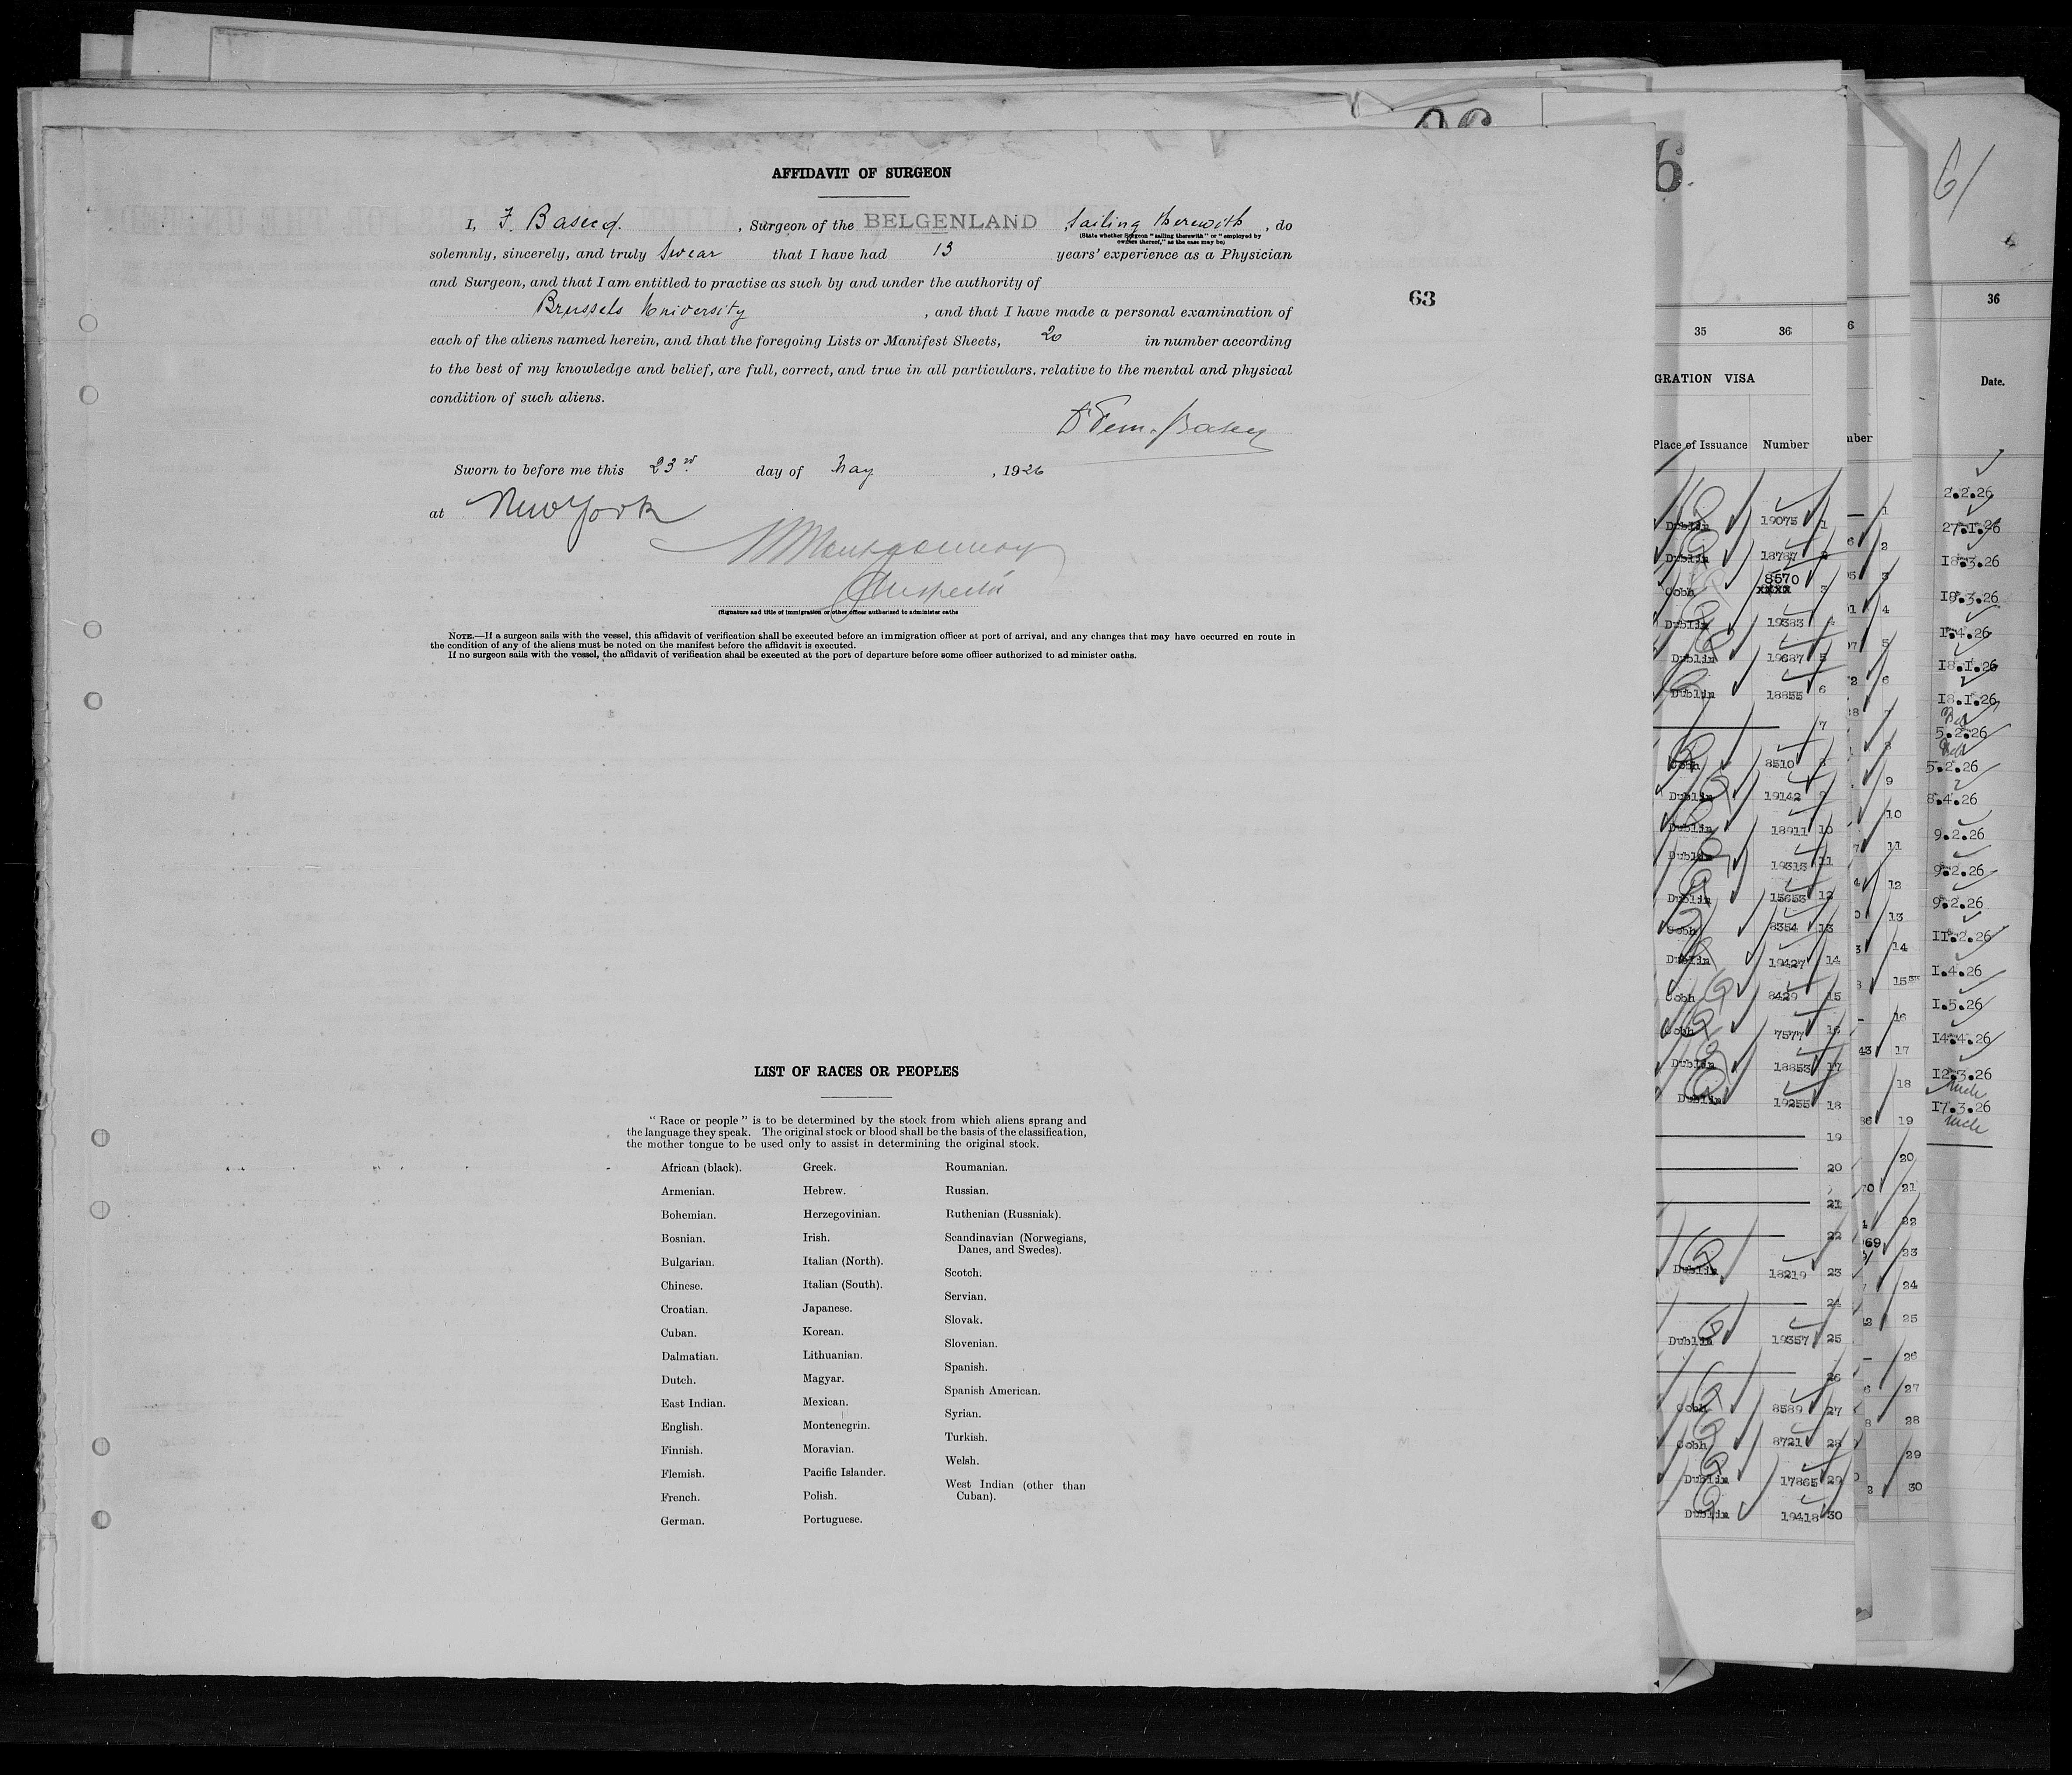 AFFIDAVIT OF SURGEON
I, F. Baseeq. , Surgeon of the BELGENLAND Sailing therewith , do
(State whether Surgeon "sailing therewith" or "employed by
owners thereof," as the case may be)
solemnly, sincerely, and truly Swear that I have had 13 years' experience as a Physician
and Surgeon, and that I am entitled to practise as such by and under the authority of
Brussels University , and that I have made a personal examination of
each of the aliens named herein, and that the foregoing Lists or Manifest Sheets, 20 in number according
to the best of my knowledge and belief, are full, correct, and true in all particulars, relative to the mental and physical
condition of such aliens.
Sworn to before me this 23rd day of May , 1926
at New York
Montgomery
Inspector
(Signature and title of immigration or other officer authorized to administer oaths
NOTE.—If a surgeon sails with the vessel, this affidavit of verification shall be executed before an immigration officer at port of arrival, and any changes that may have occurred en route in
the condition of any of the aliens must be noted on the manifest before the affidavit is executed.
If no surgeon sails with the vessel, the affidavit of verification shall be executed at the port of departure before some officer authorized to ad minister oaths.
63
LIST OF RACES OR PEOPLES
"Race or people" is to be determined by the stock from which aliens sprang and
the language they speak. The original stock or blood shall be the basis of the classification,
the mother tongue to be used only to assist in determining the original stock.
African (black).
Armenian.
Bohemian.
Bosnian.
Bulgarian.
Chinese.
Croatian.
Cuban.
Dalmatian.
Dutch.
East Indian.
English.
Finnish.
Flemish.
French.
German.
Greek.
Hebrew.
Herzegovinian.
Irish.
Italian (North).
Italian (South).
Japanese.
Korean.
Lithuanian.
Magyar.
Mexican.
Montenegrin.
Moravian.
Pacific Islander.
Polish.
Portuguese.
Roumanian.
Russian.
Ruthenian (Russniak).
Scandinavian (Norwegians,
Danes, and Swedes).
Scotch.
Servian.
Slovak.
Slovenian.
Spanish.
Spanish American.
Syrian.
Turkish.
Welsh.
West Indian (other than
Cuban).
6.
35 36
GRATION VISA
Place of Issuance Number
Dublin 19075 1
Dublin 18787 2
8570
Cobh xxxx 3
Dublin 19383 4
Dublin 19687 5
Dublin 18855 6
7
Cobh 8510 8
Dublin 19142 9
Dublin 18911 10
Dublin 19313 11
Dublin 15653 12
Cobh 8354 13
Dublin 19427 14
Cobh 8429 15
Cobh 7577 16
Dublin 18853 17
Dublin 19255 18
19
20
21
22
Dublin 18219 23
24
Dublin 19357 25
26
Cobh 8589 27
Cobh 8721 28
Dublin 17865 29
Dublin 19418 30
6
mber
1
2
3
4
5
6
7
8
9
10
11
12
13
14
15
16
17
18
19
20
21
22
23
24
25
26
27
28
29
30
61
36
Date.
2.2.26
27.1.26
18.3.26
19.3.26
1.4.26
18.1.26
18.1.26
5.2.26
5.2.26
8.4.26
9.2.26
9.2.26
9.2.26
11.2.26
1.4.26
1.5.26
14.4.26
12.3.26
17.3.26